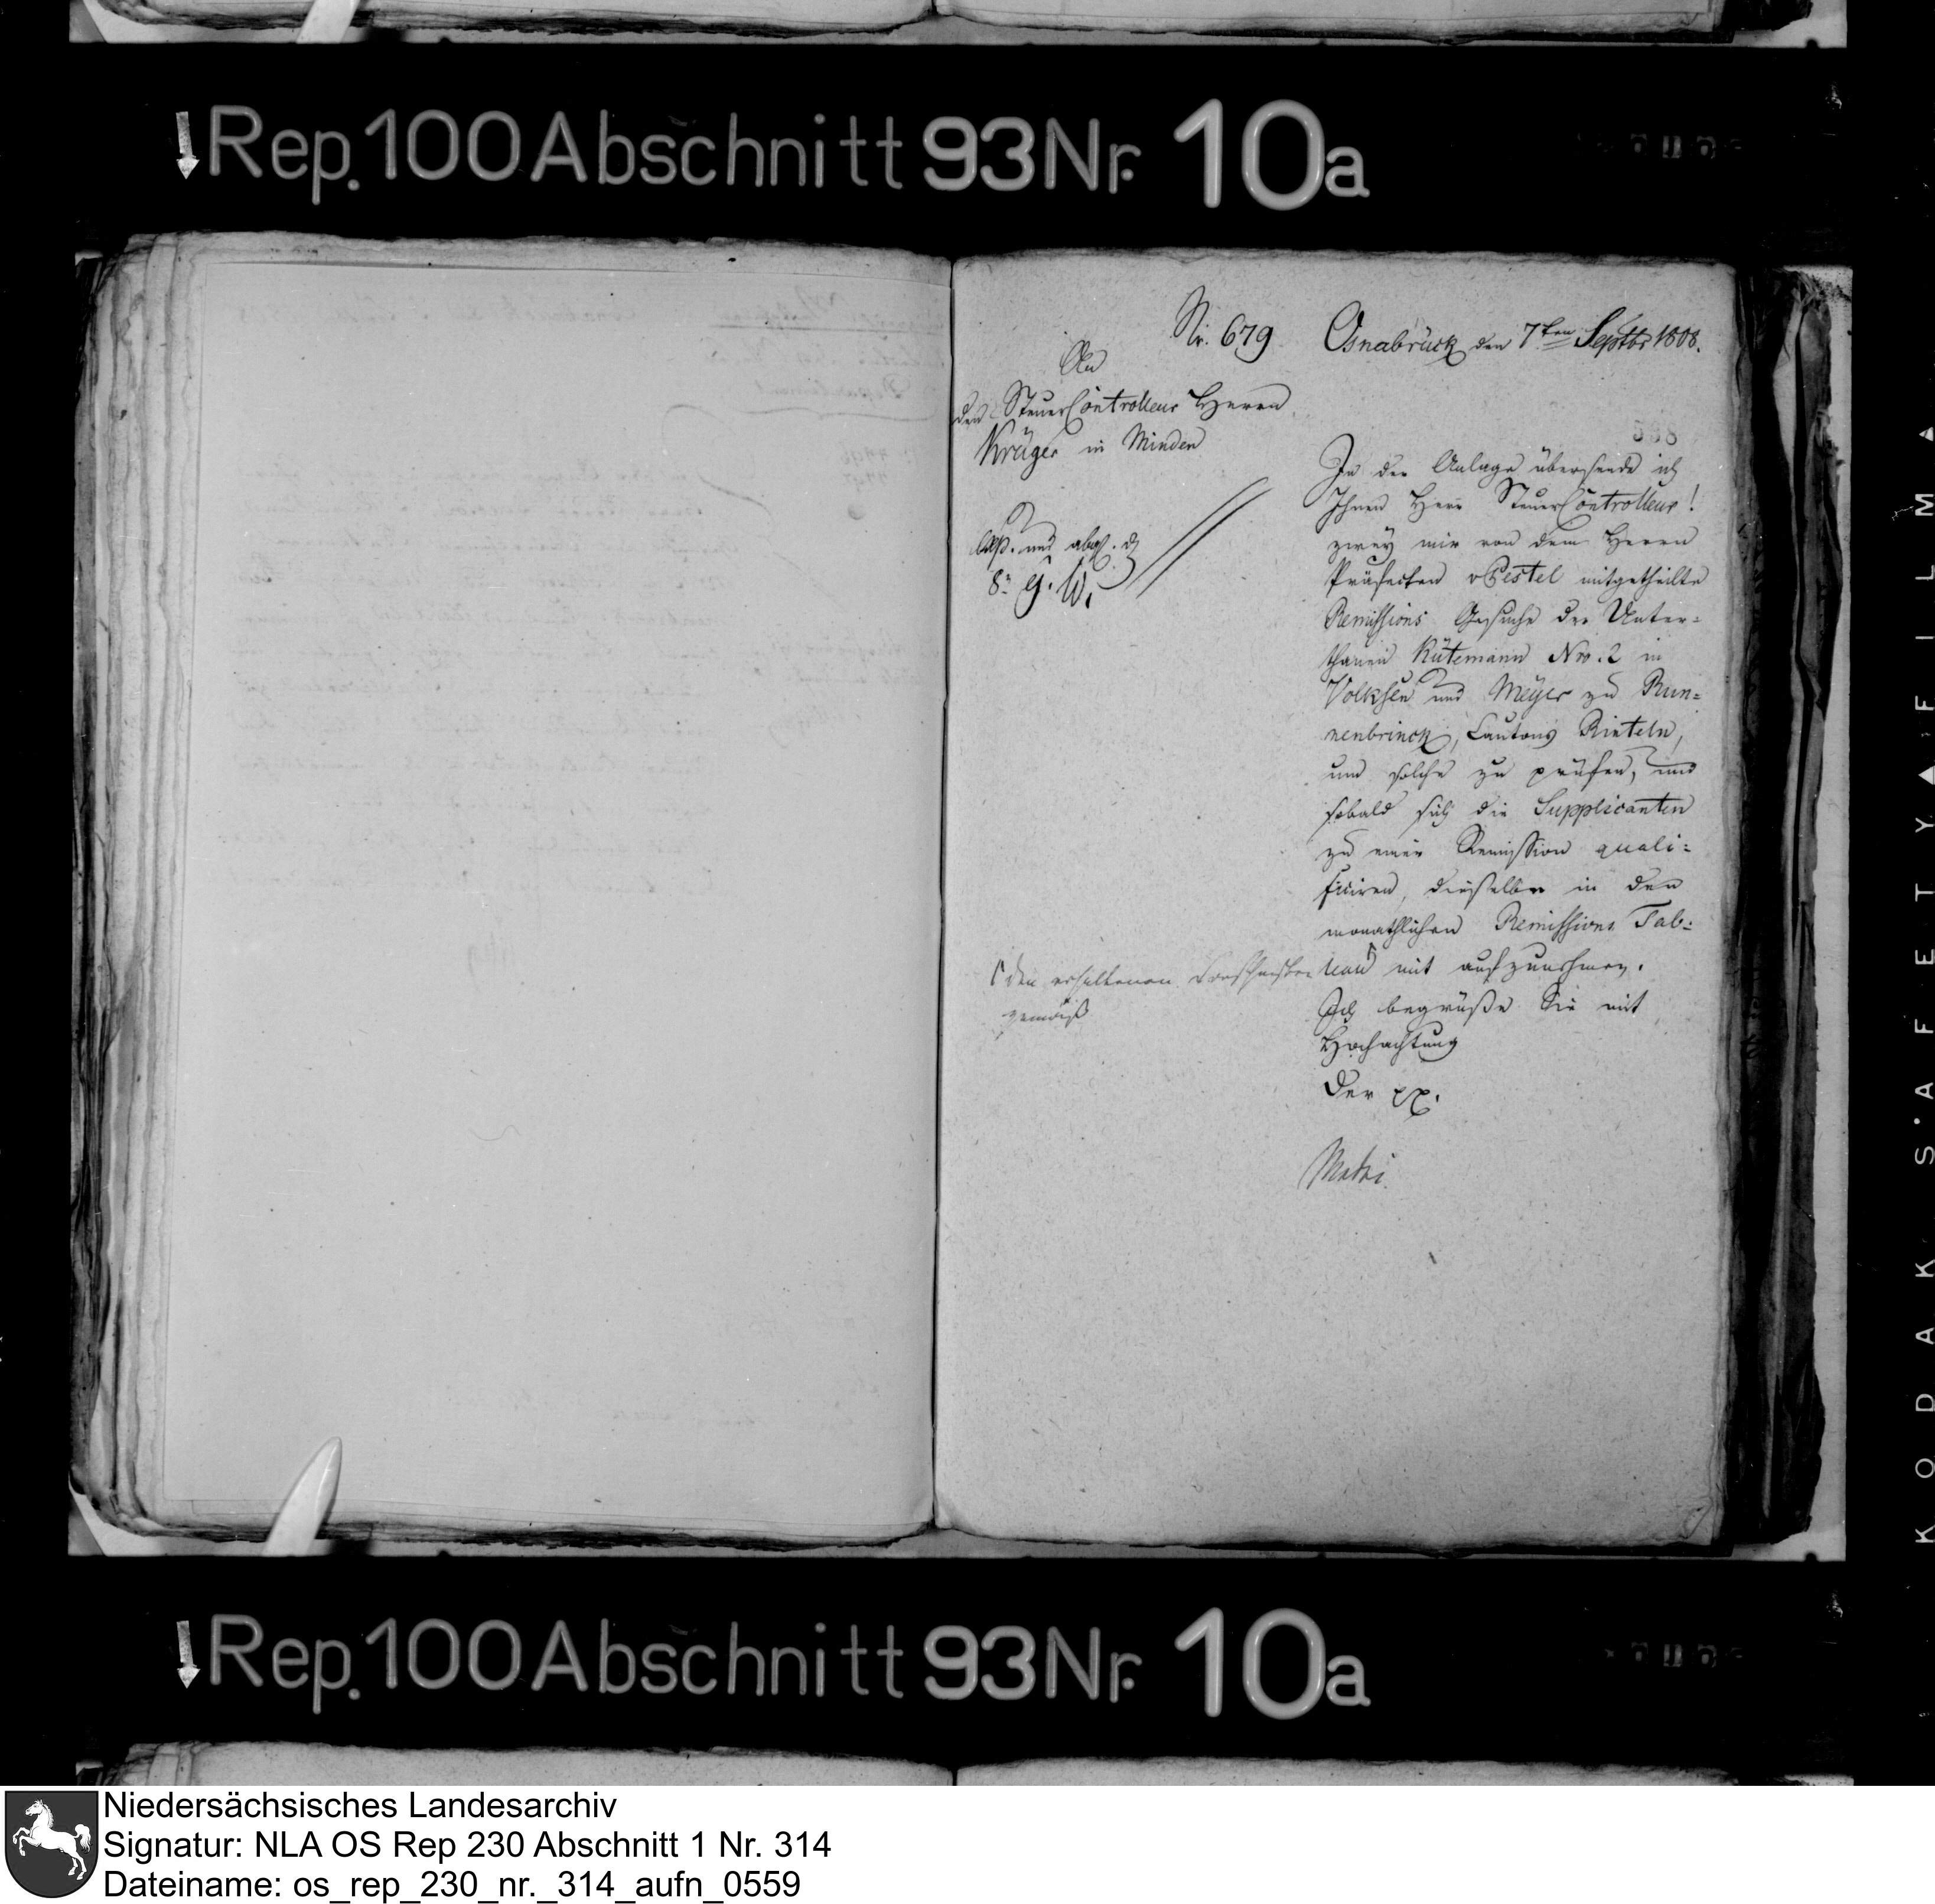 Rep. 100 Abschnitt 93 Nr. 10a
Nr. 679
Osnabrück den 7ten Septbr 1808.
An
den SteuerControlleur Herrn
Krüger in Minden
Exp. und abges. d
8. g. W.
598
In der Anlage übersende ich
Ihnen Herr SteuerControlleur!
zwey mir von dem Herrn
Präfecten vPestel mitgetheilte
Remissions Gesuche der Unter-
thanen Kütemann Nro. 2 in
Volksen und Meyer zu Run-
nenbrinck, Cantons Rinteln,
um solche zu prüfen, und
sobald sich die Supplicanten
zu einer Remission quali-
ficiren, dieselben in den
monathlichen Remissions Tab-
leau mit aufzunehmen.
den erhaltenen Vorschriften
gemäß
Ich begrüße Sie mit
Hochachtung
Der pp.
Rep. 100 Abschnitt 93 Nr. 10a
KODAK SAFETY FILM
Niedersächsisches Landesarchiv
Signatur: NLA OS Rep 230 Abschnitt 1 Nr. 314
Dateiname: os_rep_230_nr._314_aufn_0559